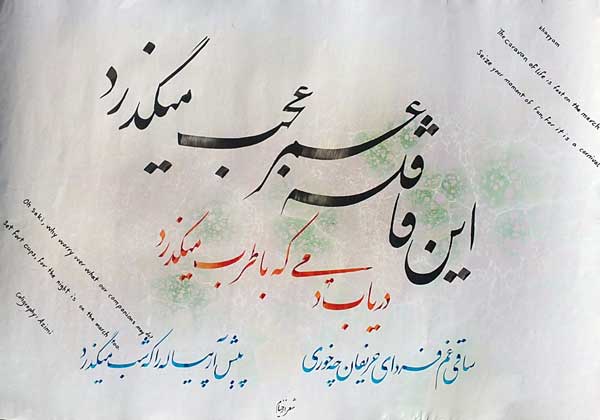 این قافله عمر عجب میگذرد
دریاب دمی که با طرب میگذرد
ساقی غم فردای حریفان چه خوری
پیش آر پیاله را که شب میگذرد
khayyam
The caravan of life is fast on the march
Seize your moment of fun, for it is a carnival
Oh Saki, why worry over what our companions may do
Set fort cups, for the night is on the march too.
Caligraphy: Azimi